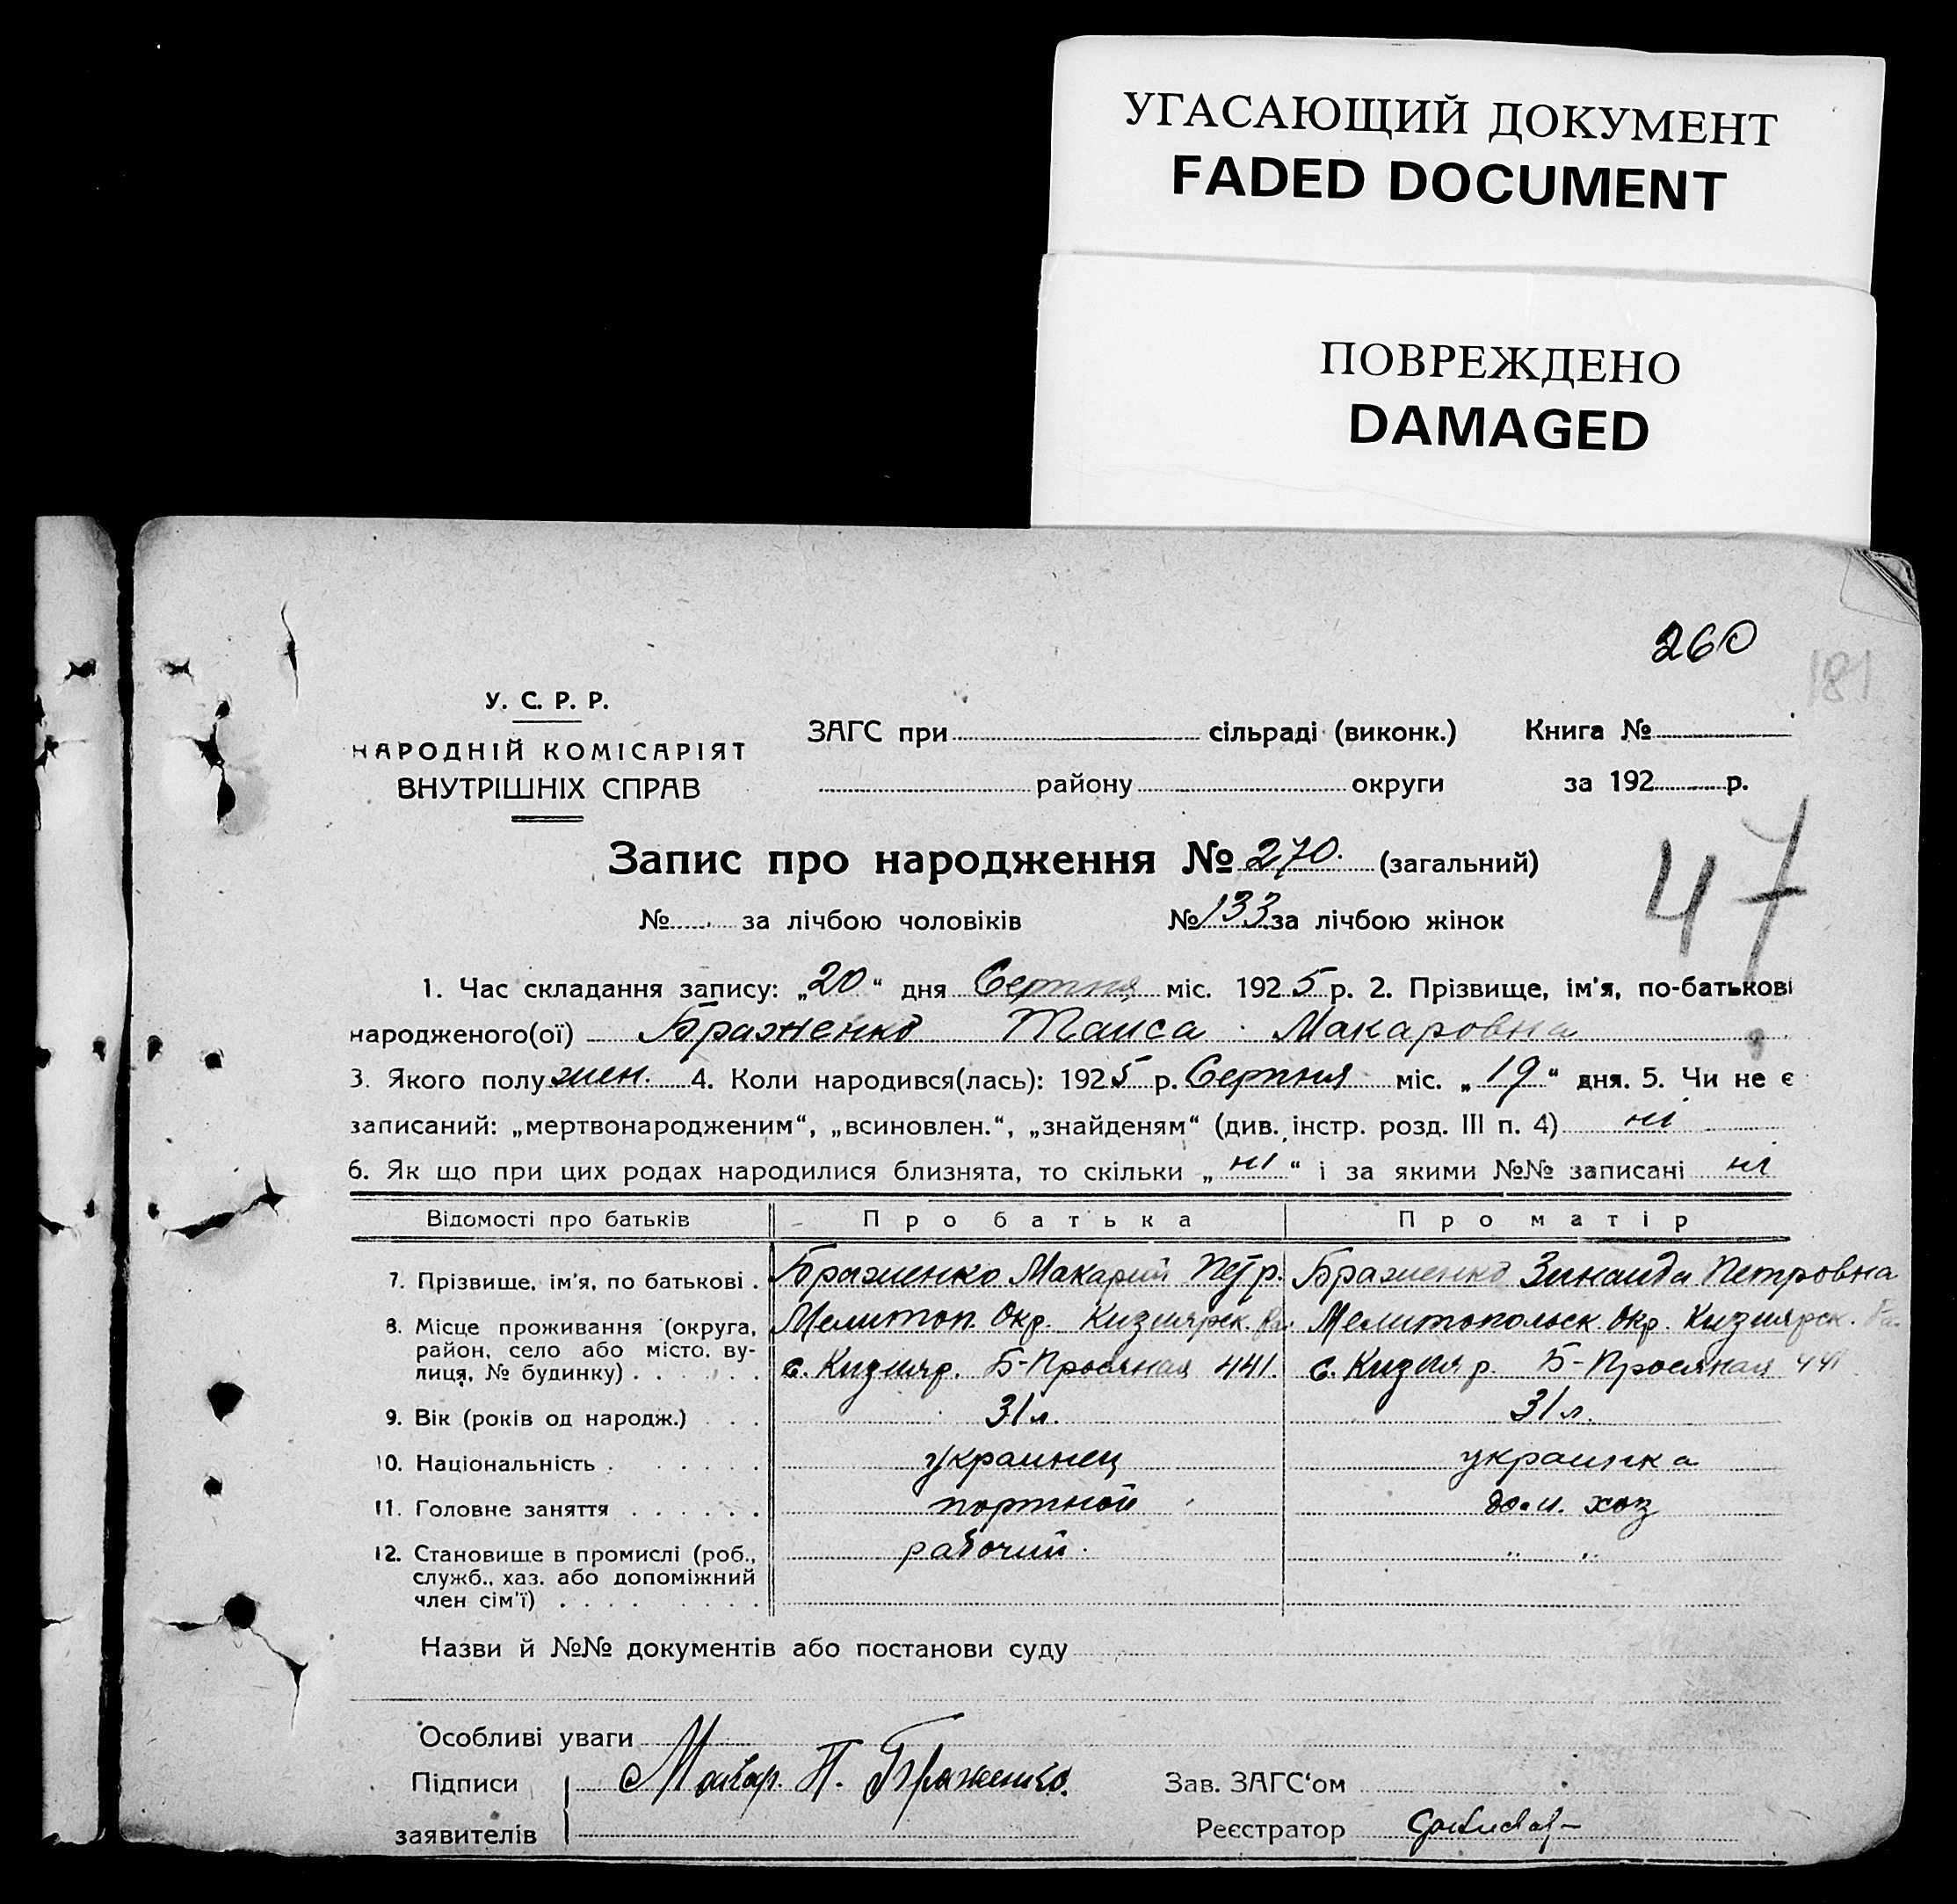 УГАСАЮЩИЙ ДОКУМЕНТ
FADED DOCUMENT
ПОВРЕЖДЕНО
DAMAGED
260
181
У. С. Р. Р.
НАРОДНІЙ КОМІСАРІЯТ
ВНУТРІШНІХ СПРАВ
ЗАГС при сільраді (виконк.) Книга №
району округи за 192 р.
47
Запис про народження № 270. (загальний)
№ за лічбою чоловіків № 133 за лічбою жінок
1. Час складання запису: „20“ дня Серпня міс. 1925 р. 2. Прізвище, ім'я, по-батькові
народженого(ої) Браженко Таиса Макаровна
3. Якого полу жен. 4. Коли народився(лась): 1925 р. Серпня міс. „19“ дня. 5. Чи не є
записаний: „мертвонародженим“, „всиновлен.“, „знайденям“ (див. інстр. розд. III п. 4) ні
6. Як що при цих родах народилися близнята, то скільки „ні“ і за якими №№ записані ні
Відомості про батьків Про батька Про матір
7. Прізвище, ім'я, по батькові . Браженко Макарий Петр. Браженко Зинаида Петровна
8. Місце проживання (округа, Мелитоп. Окр. Кизиярск. Ра. Мелитопольск Окр. Кизиярск. Ра.
район, село або місто, ву-
лиця, № будинку) . . . . . . с. Кизияр. Б-Просяная 441. с. Кизияр. Б-Просяная 441
9. Вік (років од народж.) . . . 31 л. 31 л.
10. Національність . . . . . . украинец украинка
11. Головне заняття . . . . . . портной дом. хоз
12. Становище в промислі (роб., рабочий. „ „
служб., хаз. або допоміжний
член сім'ї) . . . . . . . .
Назви й №№ документів або постанови суду
Особливі уваги
Підписи Макар. П. Браженко. Зав. ЗАГС'ом
заявителів Реєстратор